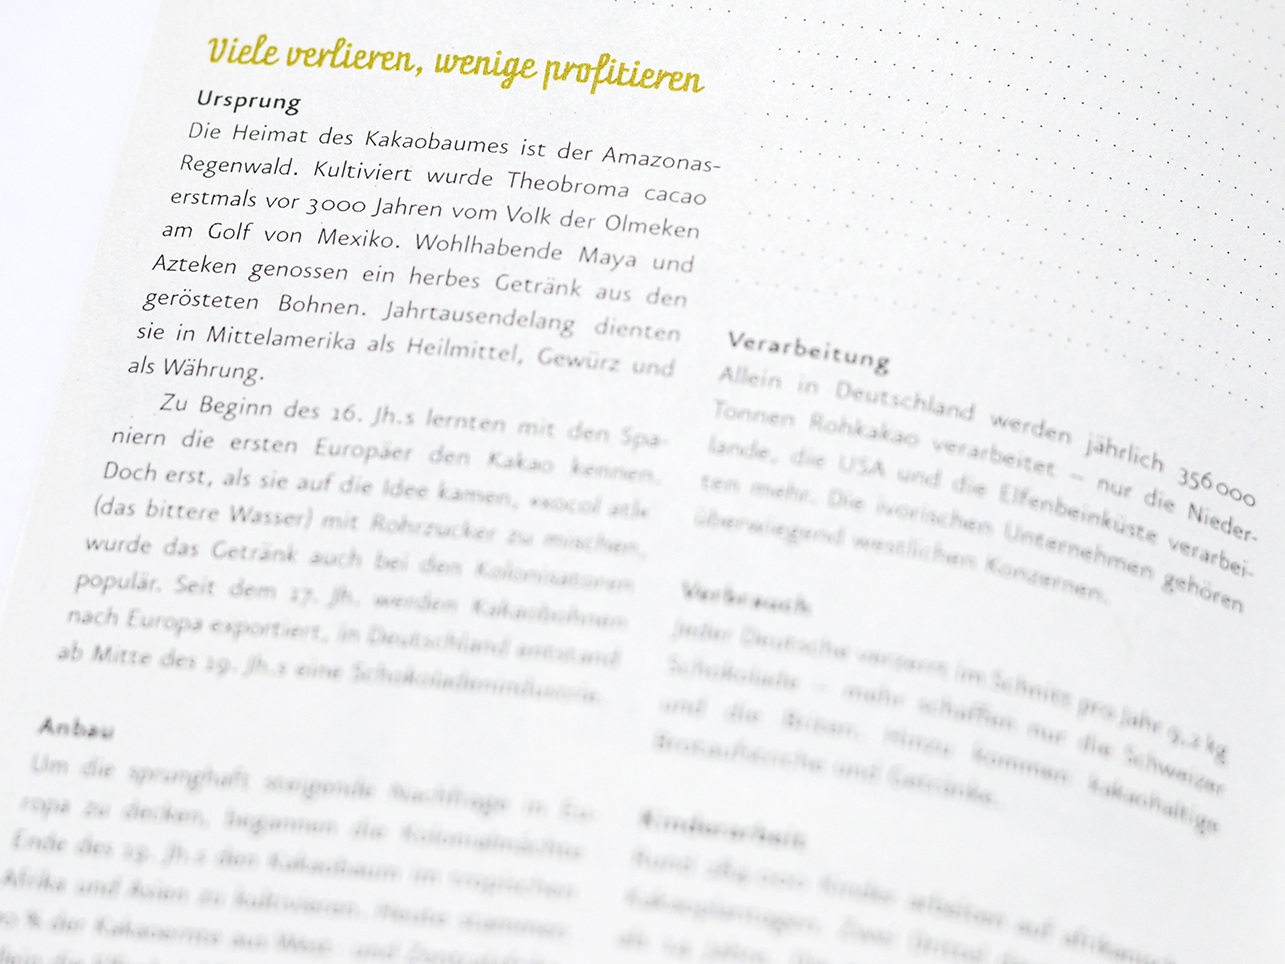 Viele verlieren, wenige profitieren
Ursprung
Die Heimat des Kakaobaumes ist der Amazonas-
Regenwald. Kultiviert wurde Theobroma cacao
erstmals vor 3000 Jahren vom Volk der Olmeken
am Golf von Mexiko. Wohlhabende Maya und
Azteken genossen ein herbes Getränk aus den
gerösteten Bohnen. Jahrtausendelang dienten
sie in Mittelamerika als Heilmittel, Gewürz und
als Währung.
Zu Beginn des 16. Jh.s lernten mit den Spa-
niern die ersten Europäer den Kakao kennen.
Doch erst, als sie auf die Idee kamen,
(das bittere Wasser) mit Rohrzucker zu mischen,
wurde das Getränk auch bei den Kolonisatoren
populär. Seit dem 17. Jh. werden Kakaobohnen
nach Europa exportiert, in Deutschland entstand
ab Mitte des 19. Jh.s eine Schokoladenindustrie.
Anbau
Um die sprunghaft steigende Nachfrage in Eu-
ropa zu decken, begannen die Kolonialmächte
Ende des 19. Jh.s den Kakaobaum im tropischen
Afrika und Asien zu kultivieren. Heute stammen
% der Kakaoernte aus West- und
Verarbeitung
Allein in Deutschland werden jährlich 356 000
Tonnen Rohkakao verarbeitet – nur die Nieder-
lande, die USA und die Elfenbeinküste verarbei-
ten mehr. Die ivorischen Unternehmen gehören
überwiegend westlichen Konzernen.
Verbrauch
Jeder Deutsche verzehrt im Schnitt pro Jahr 9,2 kg
Schokolade – mehr schaffen nur die Schweizer
und die Briten. Hinzu kommen kakaohaltige
Brotaufstriche und Getränke.
Kinderarbeit
Rund Kinder arbeiten auf afrikanischen
Kakaoplantagen. Zwei Drittel